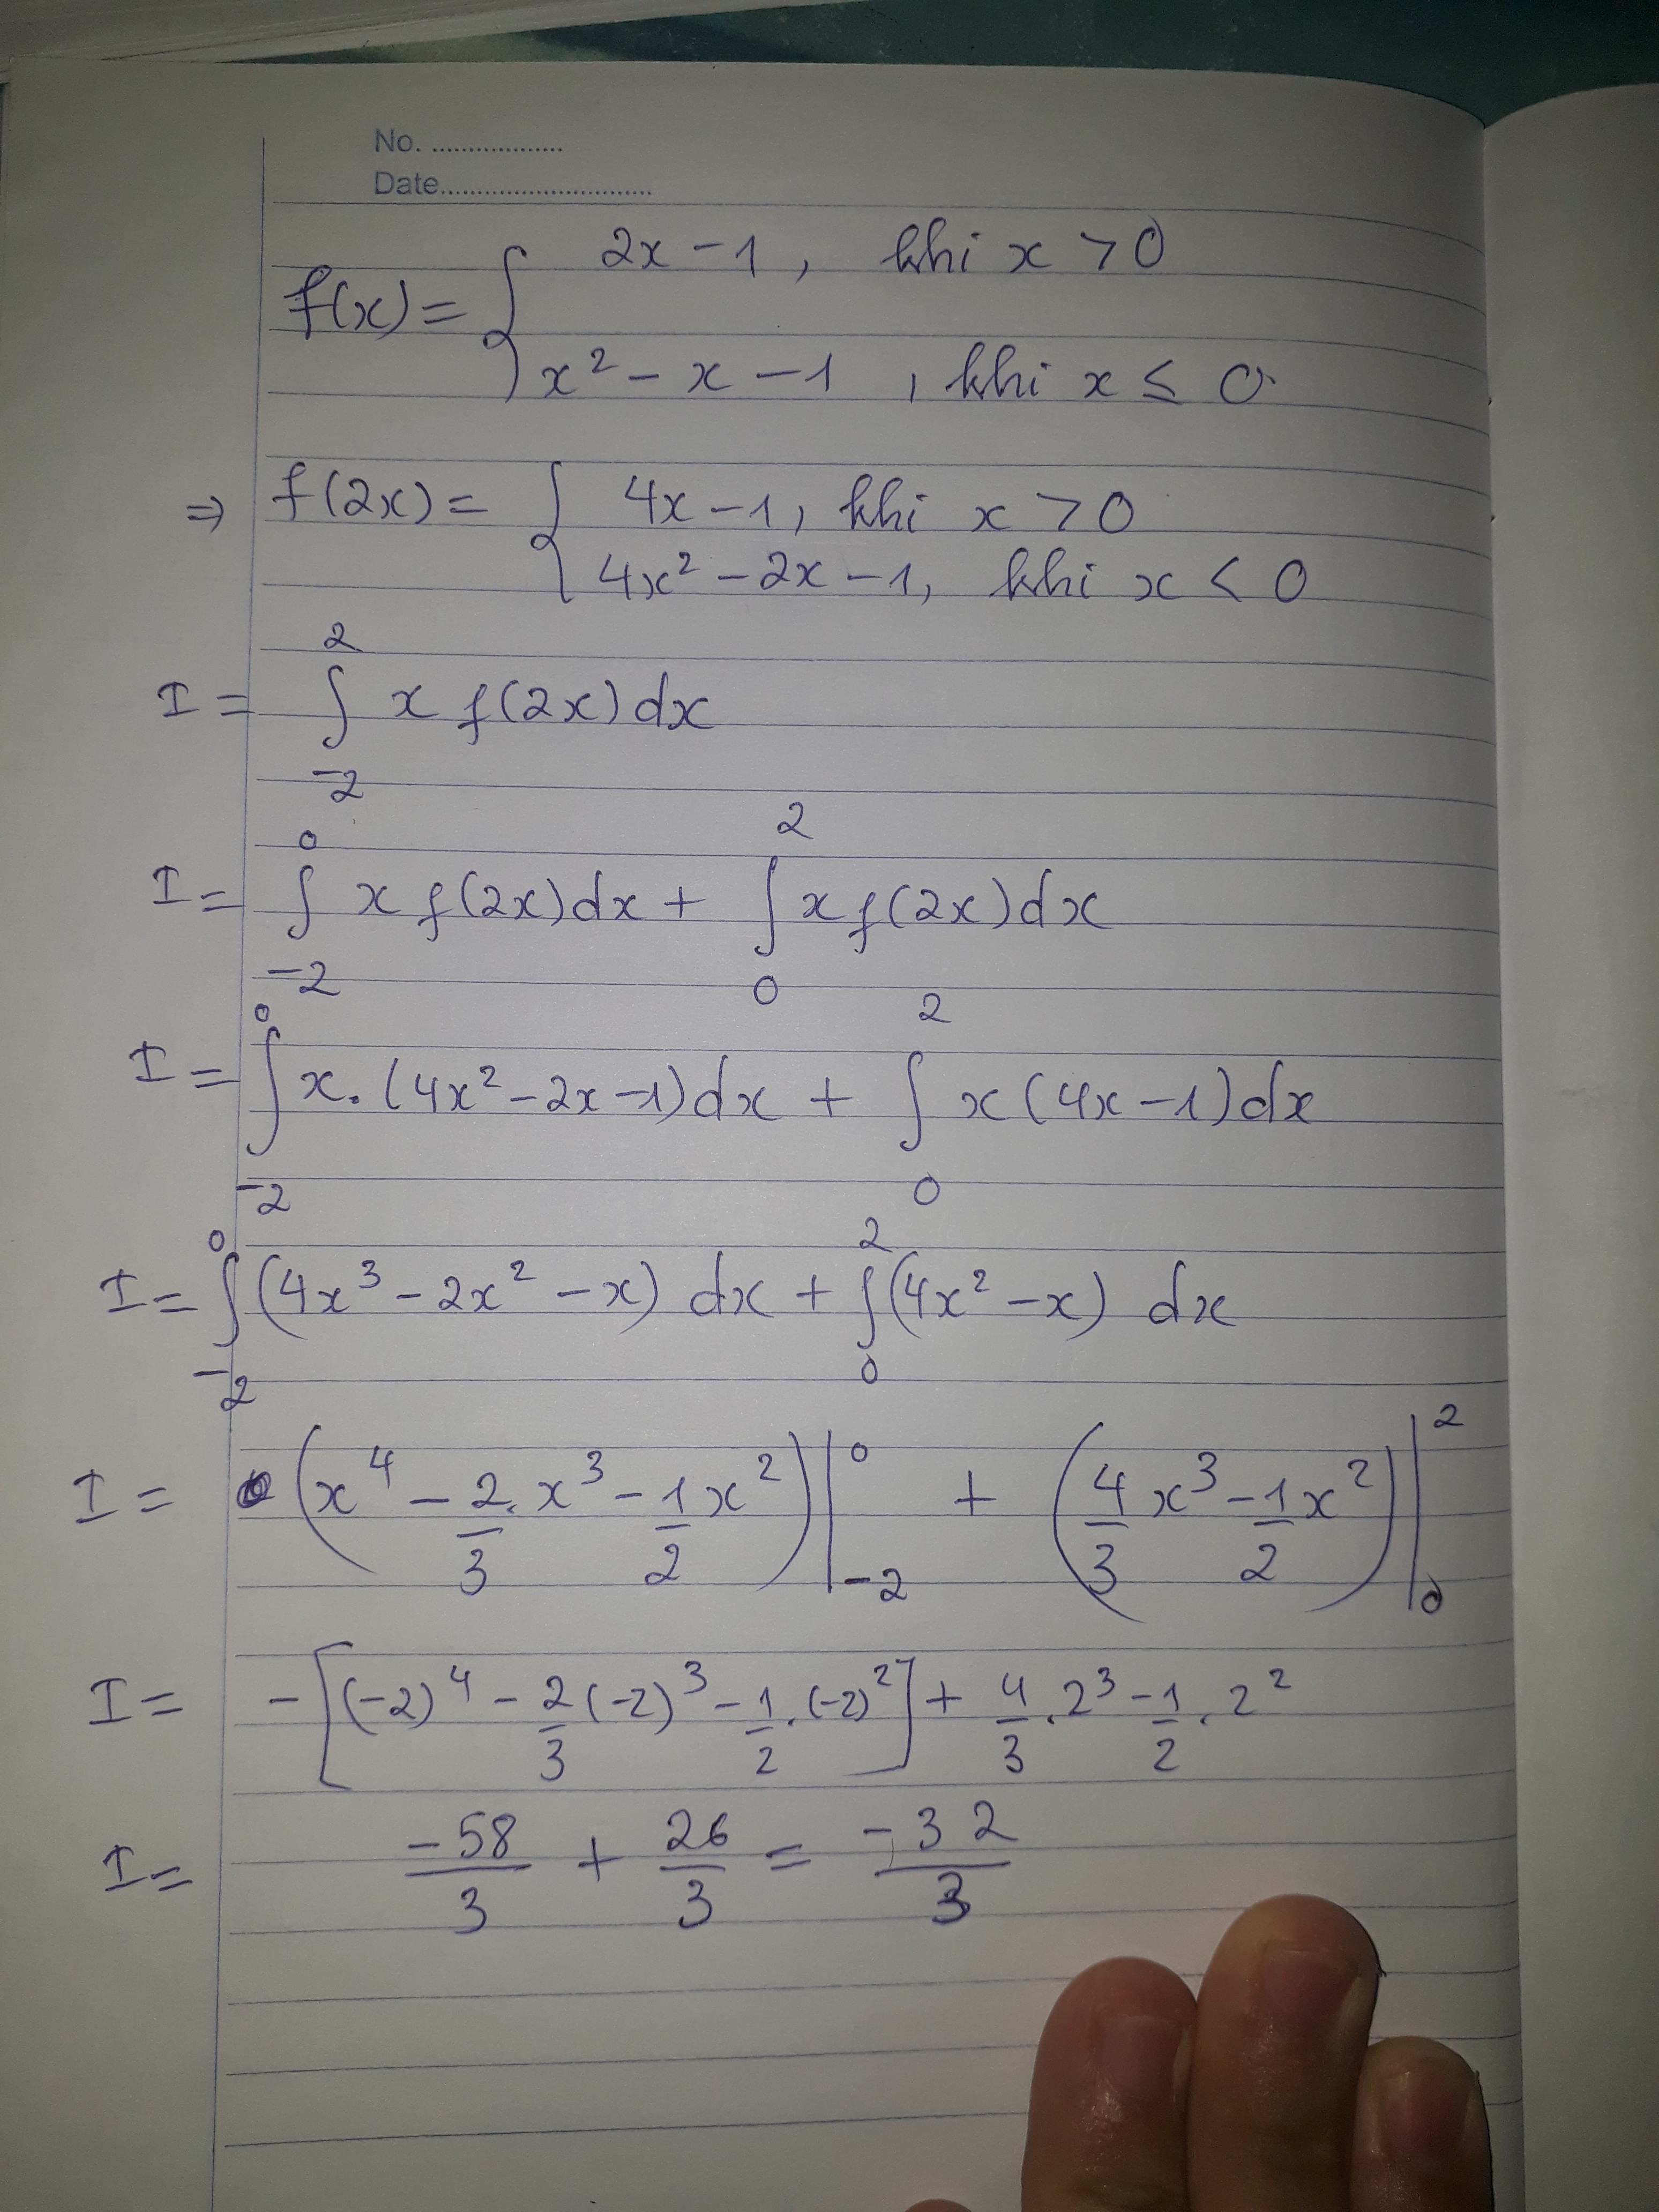 No. ..................
Date.............................
f(x) = { 2x - 1, khi x > 0
x² - x - 1, khi x ≤ 0
⇒ f(2x) = { 4x - 1, khi x > 0
4x² - 2x - 1, khi x < 0
I = ∫_{-2}^{2} x f(2x) dx
I = ∫_{-2}^{0} x f(2x) dx + ∫_{0}^{2} x f(2x) dx
I = ∫_{-2}^{0} x. (4x² - 2x - 1) dx + ∫_{0}^{2} x (4x - 1) dx
I = ∫_{-2}^{0} (4x³ - 2x² - x) dx + ∫_{0}^{2} (4x² - x) dx
I = (x⁴ - 2/3 . x³ - 1/2 x²) |_{-2}^{0} + (4/3 x³ - 1/2 x²) |_{0}^{2}
I = - [(-2)⁴ - 2/3 (-2)³ - 1/2 . (-2)²] + 4/3 . 2³ - 1/2 . 2²
I = -58/3 + 26/3 = -32/3